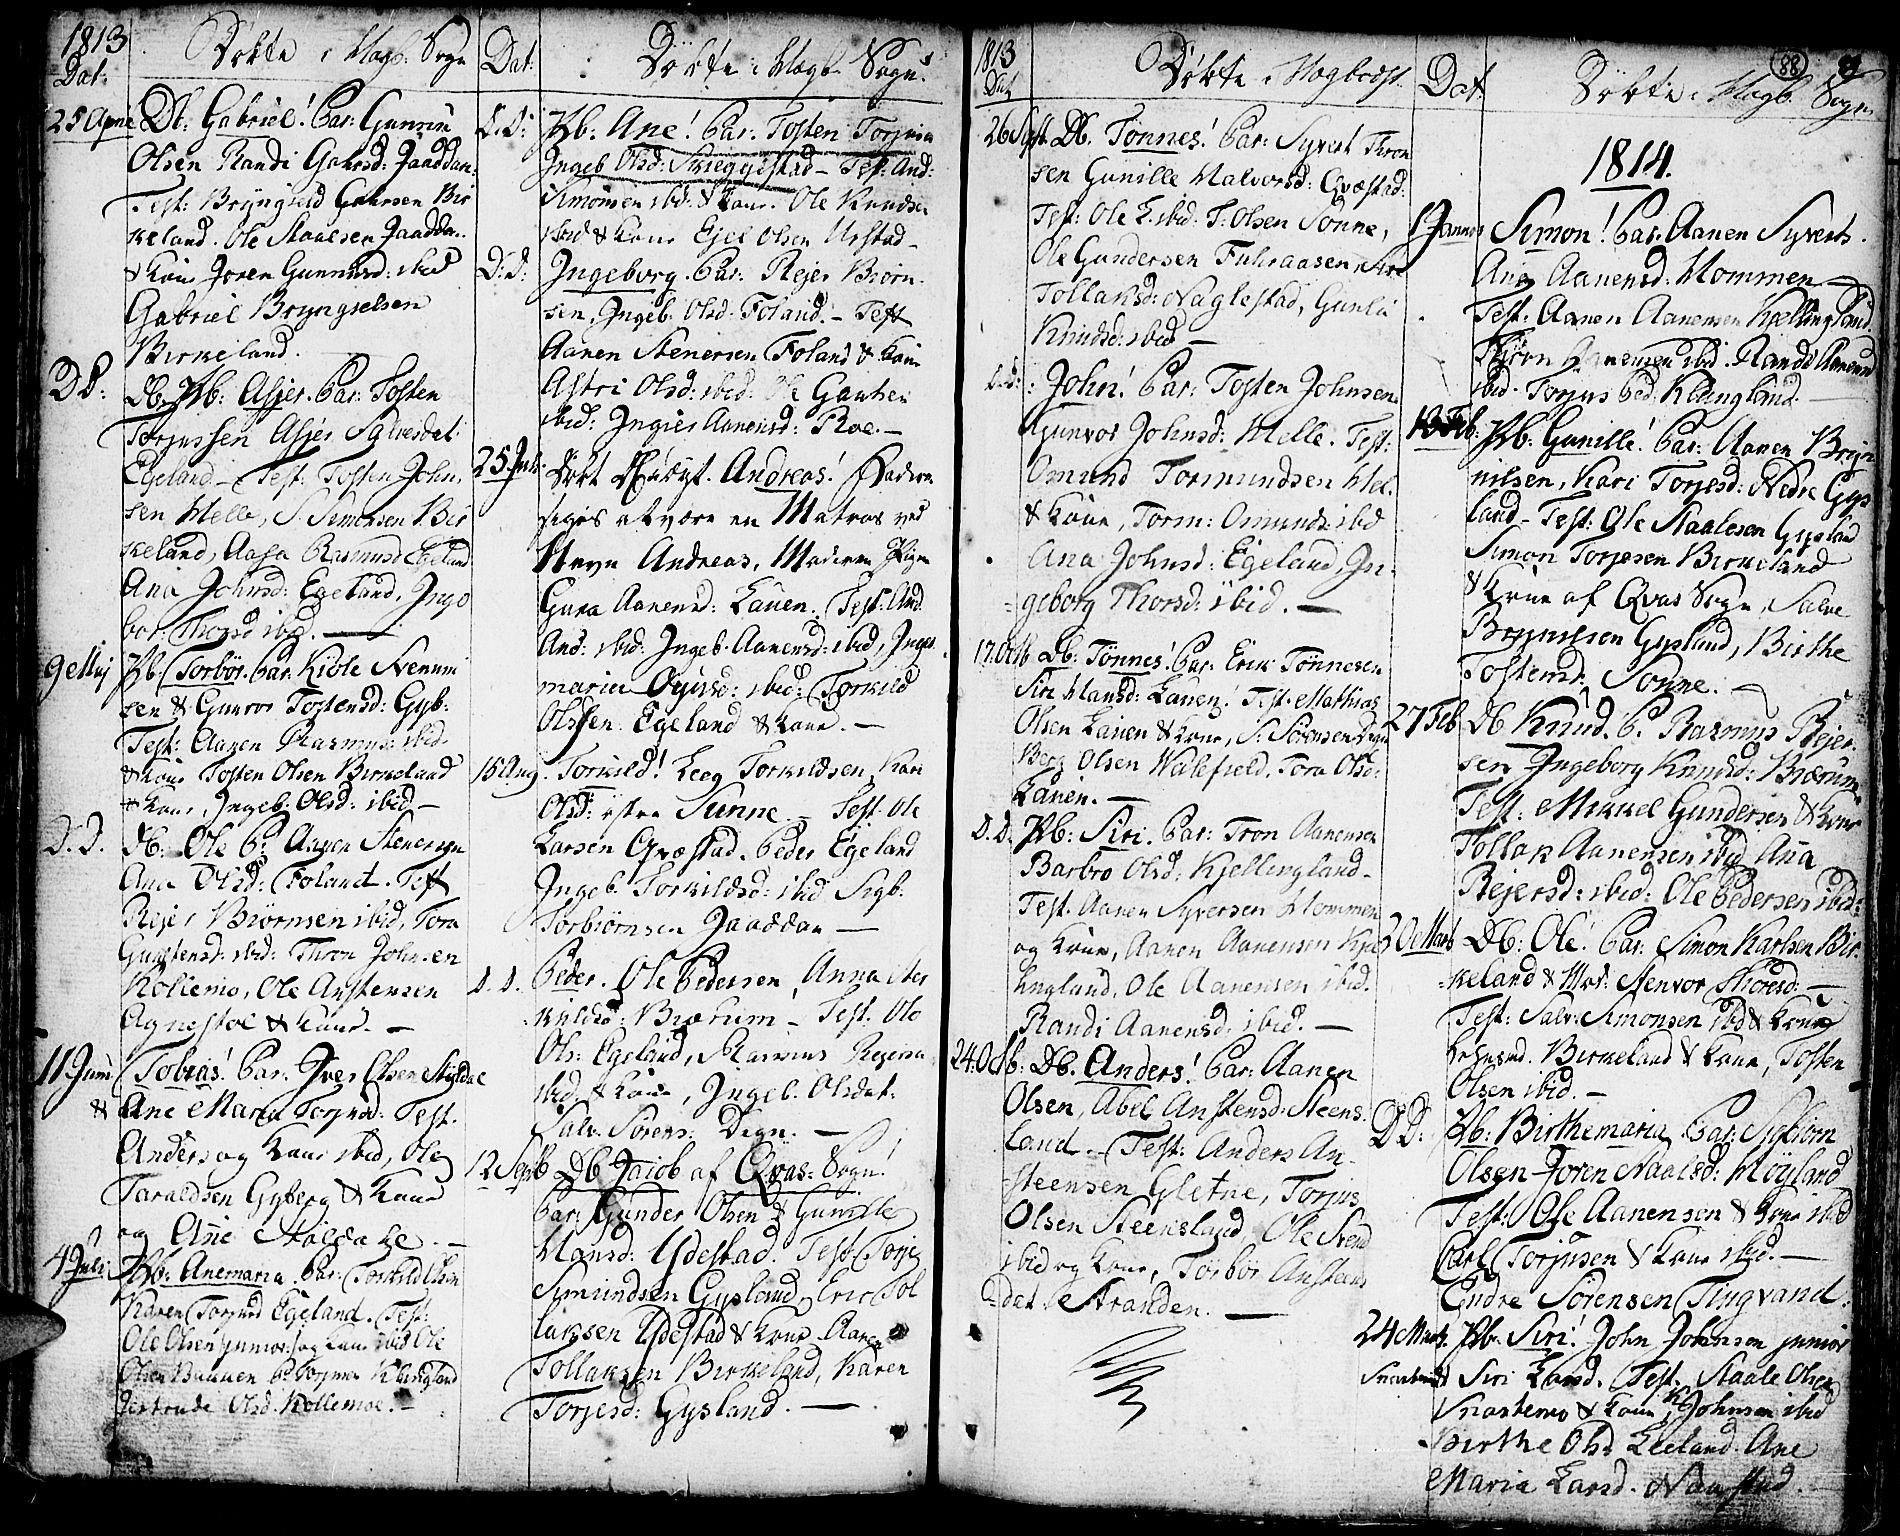 1813
Dat:
Døbte i Hægb: Sogn
25 April
Db: Gabriel! Par: Gunmu
Olsen Randi Gabrsd: Jaaddan:
Test: Bryngield Gabrsen Bir
keland. Ole Staalsen Jaaddan.
& Kone Joren Gunmusd: ibid
Gabriel Bryngielsen
Birkeland.
D D:
Db. Hb: Asjer. Par: Tosten
Torjussen Asjer Salvesdat:
Egeland – Test: Tosten John,
sen Melle, S. Simensen Bir
keland, Aasa Rasmusd Egeland
Ana Johnsd: Egeland, Inge
bor: Thorsd ibid. —
9 Maj
Hb: Torbor. Par. Kiøle Svenum
sen & Gunvor Tostensd: Gyb:
Test: Aanen Rasmus: ibid.
& Kone Tosten Olsen Birkeland
& Kone, Ingeb. Olsd: ibid –
D. D.
Db: Ole P: Aanen Stenersen
Ana Olsd: Foland. Test
Rejer Biörnsen ibid, Tora
Gunstensd: ibid: Thron Johnsen
Kollemo, Ole Anstensen
Agnestøl & Kone. –
11 Juni
Tobias! Par. Iver Olsen Stølsdal
& Ane Maria Torjusd: Test.
Anders og Kone ibid, Ole
Taraldsen Gyberg & Kone
og Ane Stølsdahl. –
4 Juli
Hb: Anemaria. Par: Torkild Olsen
Karen Torjusd Egeland. Test:
Ole Olsen junior og Kone ibid Ole
Olsen P: Torjus Klingland
Jertrude Olsd. Kollemoe. –
Dat:
Døbte i Hægb: Sogn.
D. D:
Hb: Ane! Par. Tosten Torjusen
Ingeb Olsd: Skieggestad – Test: And:
Simonsen ibid. & Kone. Ole Knudsen
ibid & Kone Ejel Olsen Urstad –
D: D:
Ingeborg. Par: Rejer Biörn-
sen, Ingeb. Olsd. Foland. – Test
Aanen Stenersen Foland & Kone
Astri Olsd: ibid: Ole Gautsen
ibid: Ingier Aanensd: Roe. –
25 Juli:
Døbt Andreas! Faderen
siges at være en Matros ved
Navn Andreas, Moderen Pigen
Gura Aanensd: Lauen. Test: And
And: ibid: Ingeb. Aanensd: ibid, Inge
maria ibid: Torkild
Olssen Egeland & Kone. –
15 Aug.
Torkild! Leeg Torkildsen, Kari
Olsd: østre Sunne – Test. Ole
Larsen Qvæstad. Peder Egeland
Ingeb. Torkildsd: ibid Sigb:
Torbiørnsen Jaaddan —
D. D.
Peder. Ole Pedersen, Anna Ties
kildsd: Biærum – Test. Ole
Ols: Egeland, Rasmus Rejersen
ibid & Kone, Ingeb. Olsdat:
Salv. Sörens: Degn. –
12 Septb
Db Jacob af Qvas: Sogn!
Par: Gunder Olsen & Gunille
Hansd: Ydestad. Test: Torjes
Simundsen Gysland, Eric Tol
laksen Ydestad & Kone. Aanen
Tollaksen Birkeland, Karen
Torjesd: Gysland. —
1813
Dat
Døbte i Hægbostd
26 Sept.
Db. Tønnes! Par: Syvert Thron
sen Gunille Halvorsd: Qvæstad:
Test: Ole L. ibid: T: Olsen Sonne,
Ole Gundersen Fuhraasen, Siri
Tollaksd: Naglestad, Gunla
Knudsd: ibid –
D. D:
John! Par: Tosten Johnsen
Gunvor Johnsd: Melle. Test:
Omund Tormundsen Mel.
& Kone, Torm: Omunds: ibid
Ana Johnsd: Egeland, In-
geborg Thorsd: ibid. –
17. Octb
Db: Tønnes! Par: Erik Tønnesen
Siri Hansd: Lauen! Test. Mathias
Olsen Lauen & Kone, S: Sörensen Degn
Berg Olsen Wallefield. Tora Olsd:
Lauen. –
D. D.
Hb: Siri. Par: Tron Aanensen
Barbro Olsd: Kjellingland –
Test. Aanen Syversen Hommen
og Kone, Aanen Aanensen Kjel
lingland, Ole Aanensen ibid.
Randi Aanensd. ibid. –
24. Octb:
Db. Anders! Par: Aanen
Olsen, Abel Anstensd: Steens
land. – Test: Anders An-
steensen Gletne, Torjus
Olsen Steensland, Ole Svend
ibid og Kone, Torbor Ansteens
dat: Stranden. –
Dat:
Døbte i Hægb: Sogn.
88
1814.
1 Januar
Simon! Par: Aanen Syverts.
Ana Aanensd: Hommen –
Test: Aanen Aanensen Kjellingland.
Biörn Aanensen ibid. Randi Aanensd
ibid. Torjus Ped: Klingland.
13 Feb:
Hb: Gunille! Par: Aanen Bryn
nilsen, Kari Torjesd: Nedre Gys
land – Test: Ole Staalesen Gysland
Simon Torjesen Birkeland
& Kone af Qvas Sogn, Salve
Brynilsen Gysland, Birthe
Tostensd: Sonne. –
27 Feb
Db Knud. P. Rasmus Rejer
sen Ingeborg Knudsd: Biærum
Test: Mikkel Gundersen & Kone
Tollak Aanensen ibid Ana
Rejersd: ibid: Ole Pedersen ibid:
20 Marts
Db: Ole! Par: Simon Karlsen Bir-
keland & Mod: Stenvor Thorsd: –
Test: Salv: Simonsen ibid & Kone
Birkeland & Kone, Tosten
Olsen ibid. –
D D:
Hb: Birthemaria. Par: Sigbiörn
Olsen Joren Staalsd: Høyland
Test: Ole Aanensen & Kone ibid
Carl Torjusen & Kone ibid. –
Endre Sörensen Tingvand.
24 Marts.
Hb: Siri! John Johnsen junior
Snartemo Siri Larsd. Test. Staale Olsen
Snartemo & Kone, K. Johnsen ibid
Birthe Olsd Leeland. Ane
Maria Larsd.